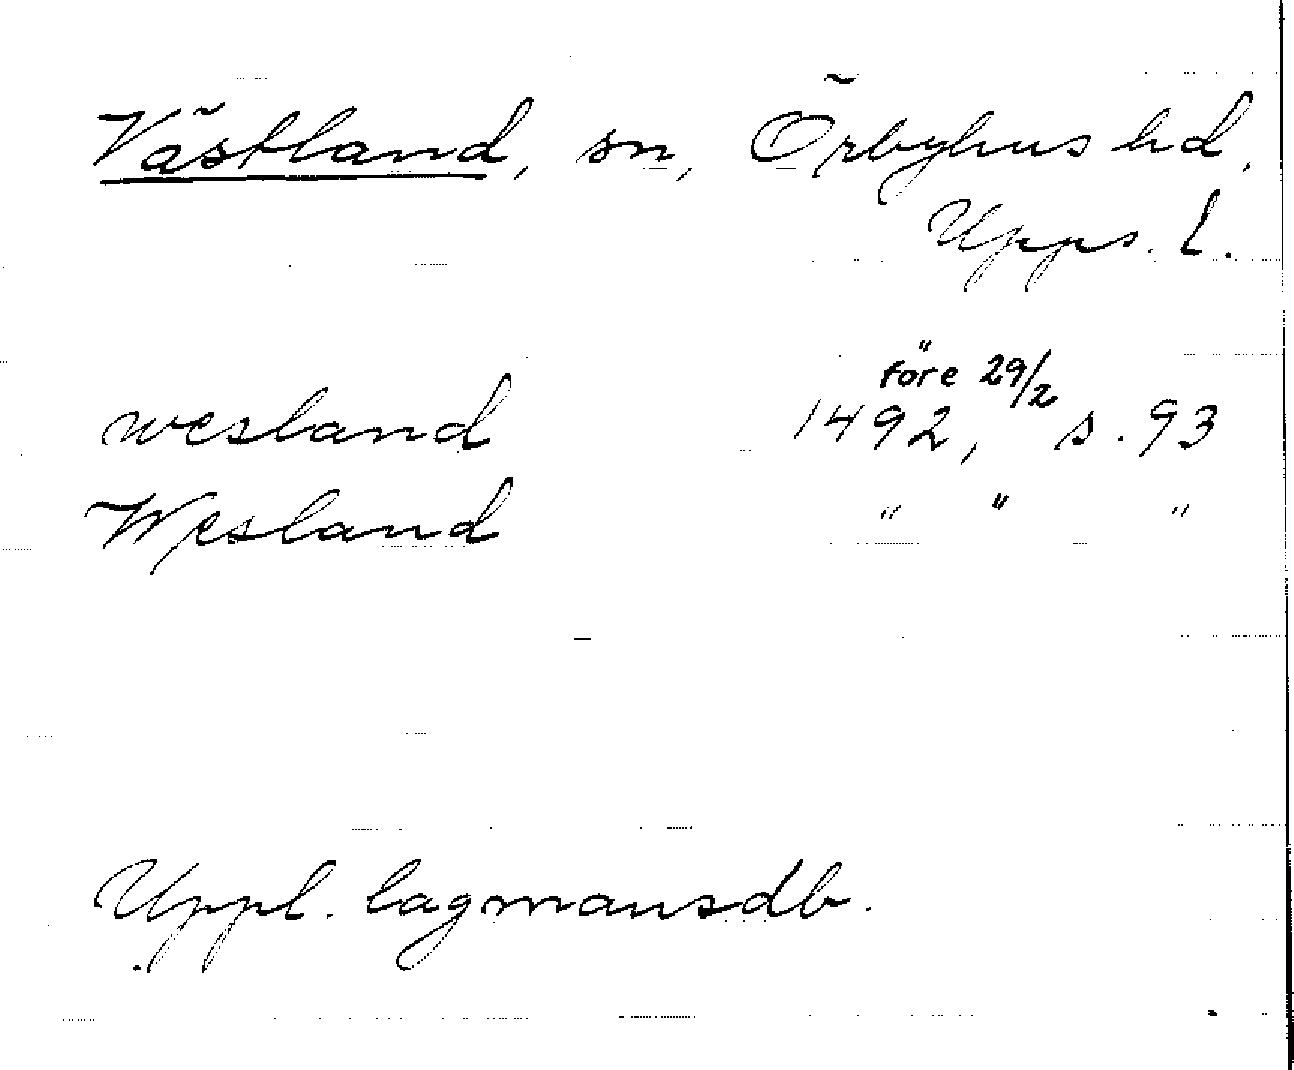 Västland, sn, Örbyhus hd,
Upps. l.
före 29/2
wesland 1492, s. 93
Wesland " " "
Uppl. lagmansdb.